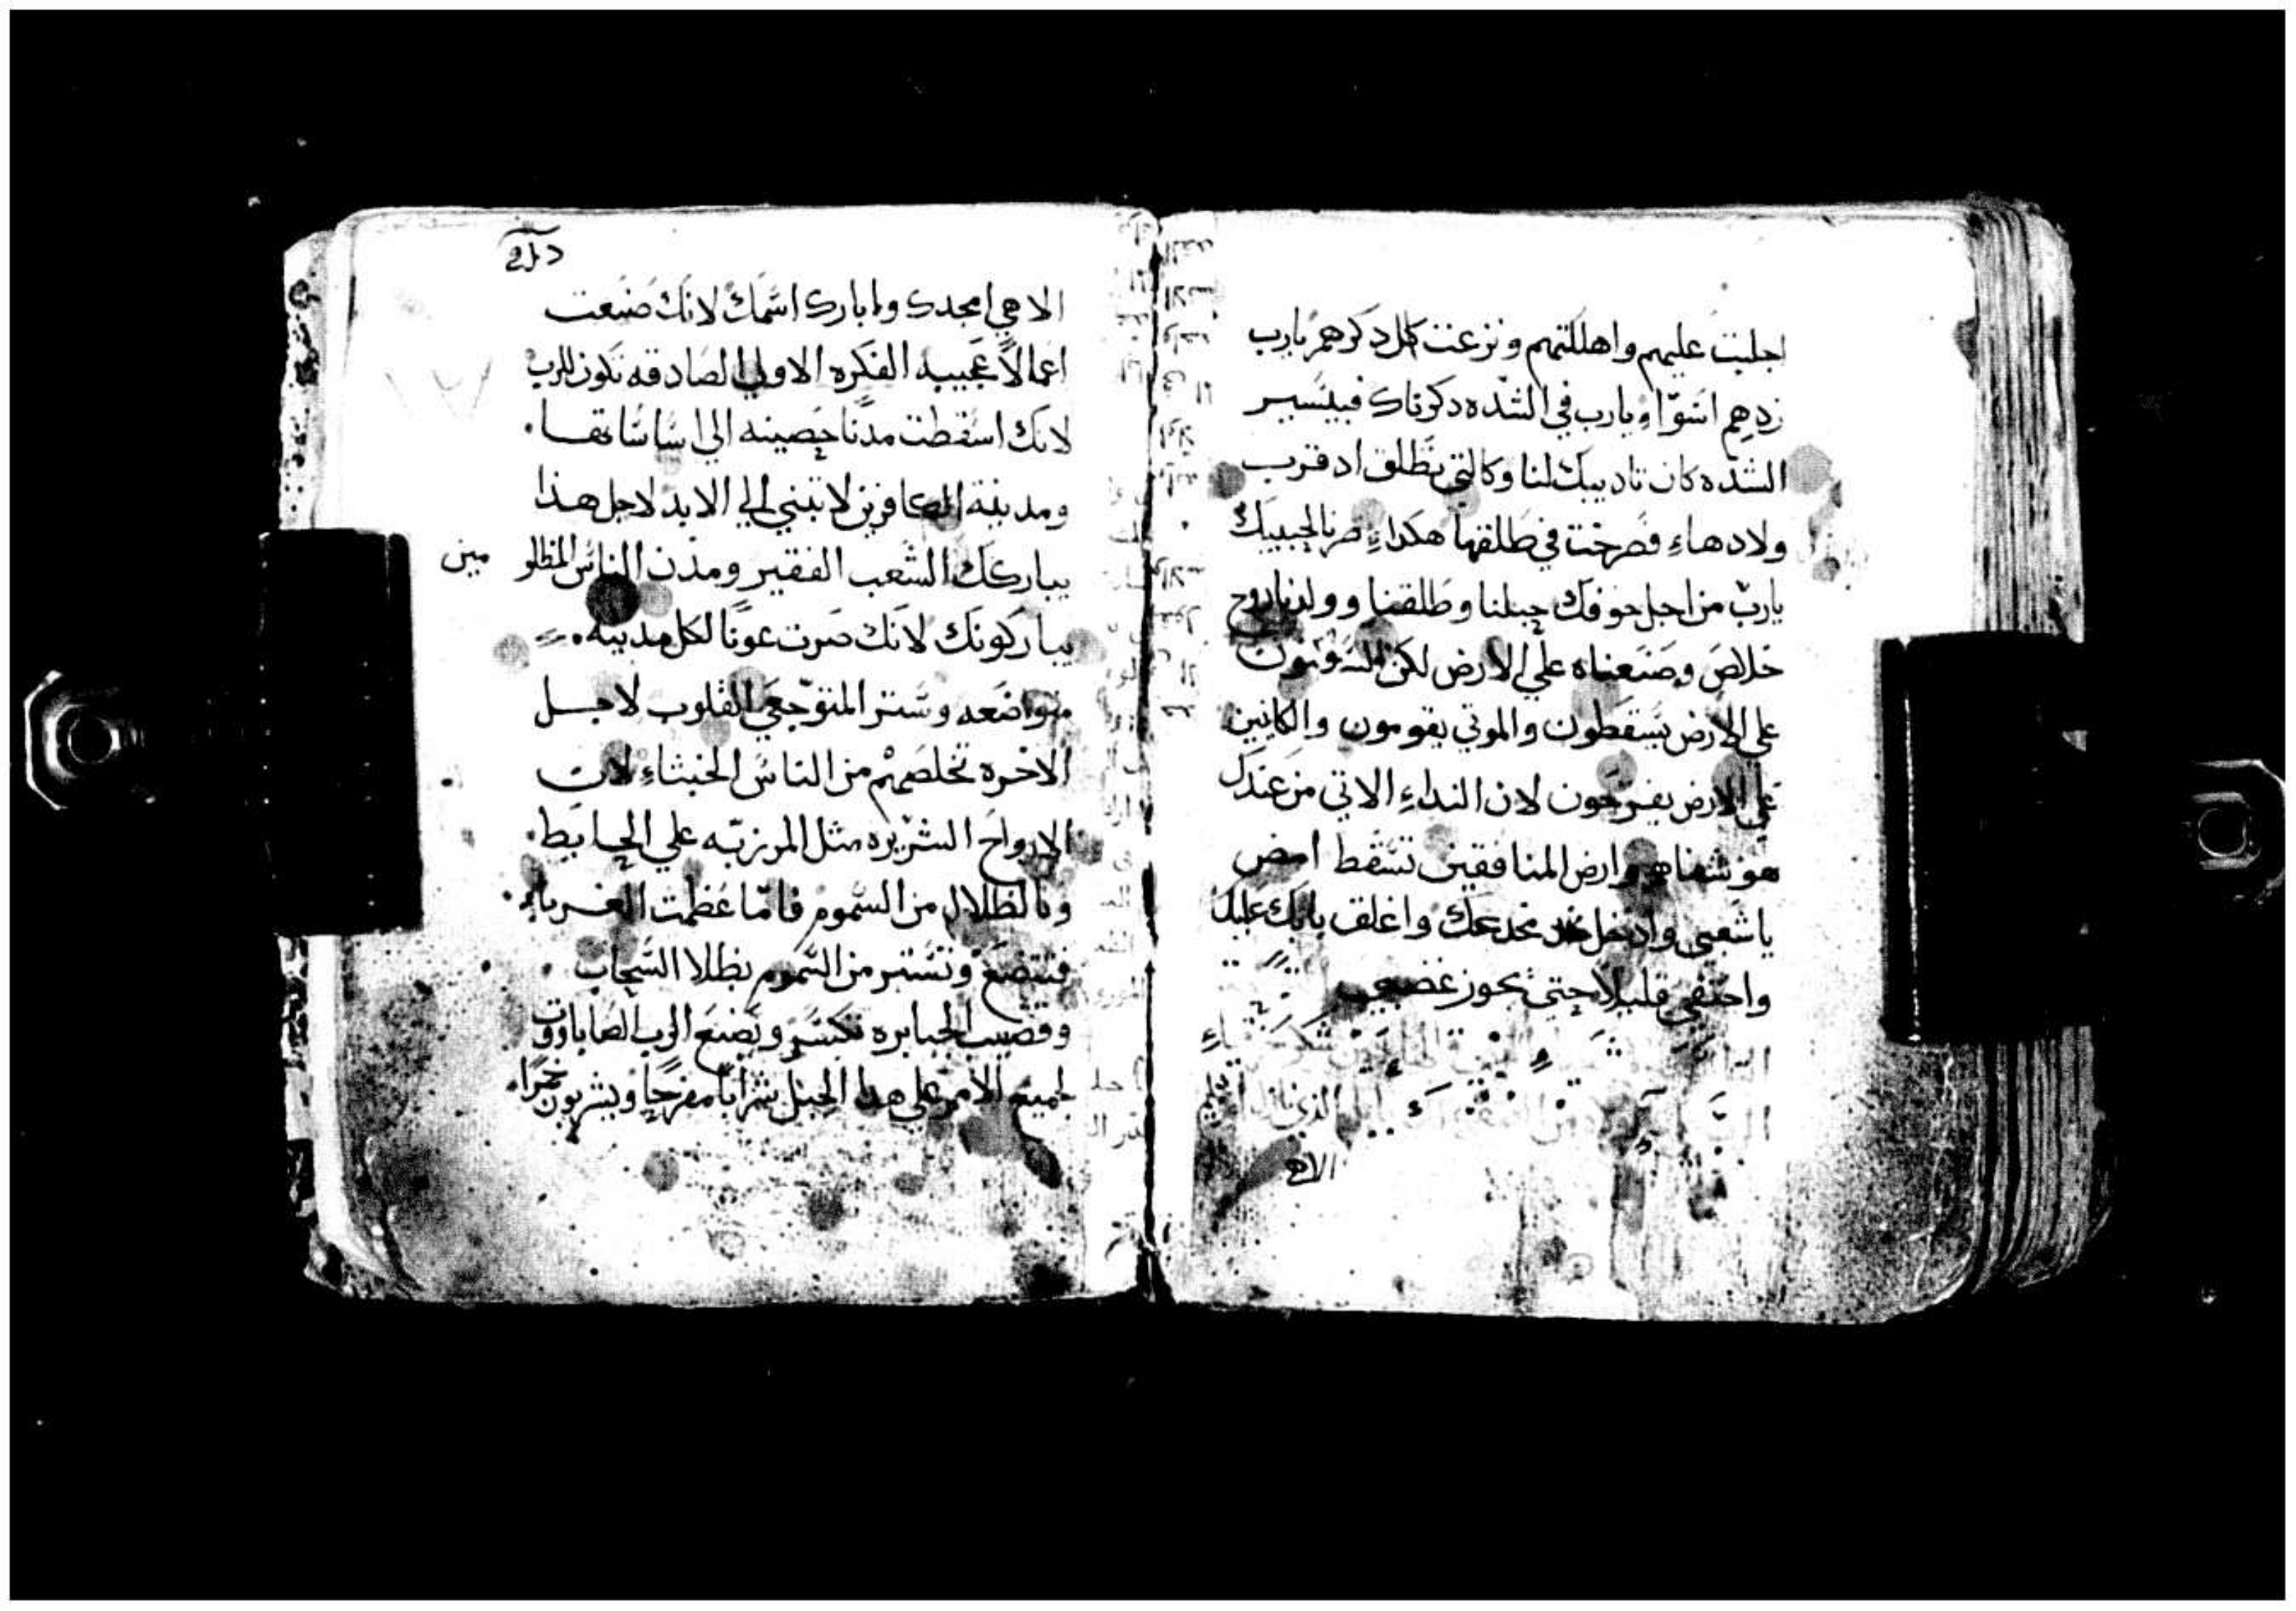 اجلبت عليهم واهللكتهم ونزعت كل دكرهم يارب
زدهم اسوّاءِ يارب في الشده دكرناك فبيَسير
الشده كان تاديبك لنا وكالتي تطلق اد قرب
ولادهاءِ فصرخت في طلقها هكداءِ صرنا لحبيبك
يارب من اجل خوفك حبلنا وطلقنا وولدنا روح
خلاص وصنعناه علي الارض لكن
علي الارض يسقطون والموتي يقومون والكاينين
علي الارض يفرحون لان النداءِ الاتي من عندك
هو شفاهم وارض المنافقين تسقط امض
ياشعبي وادخل مخدعك واغلق بابك عليك
واختفي قليلاً حتي يجوز غضبي
الاهي
الاهي امجدك وابارك اسمك لانك صنعت
اعمالاً عجيبه الفكره الاولي الصادقه تكون للرب
لانك اسقطت مدنًا حصينه الي اساساتها
ومدينة الكافرين لا تبني الي الابد لاجل هذا
يباركك الشعب الفقير ومدن الناس المظلو مين
يباركونك لانك صرت عونًا لكل مدينه
متواضعه وستر المتوجعي القلوب لاجل
الاخره تخلصهم من الناس الخبثاءِ لان
الارواح الشريره مثل المرزبّه علي الحايط
وكالظلال من السموم فامّا عظمت الغرباءِ
فتتضع وتستتر من السموم بظلال السحاب
وقضيب الجبابره تكسر ويصنع الرب الصاباووت
لجميع الامم علي هدا الجبل شرابًا مفرحًا ويشربون خمرًا